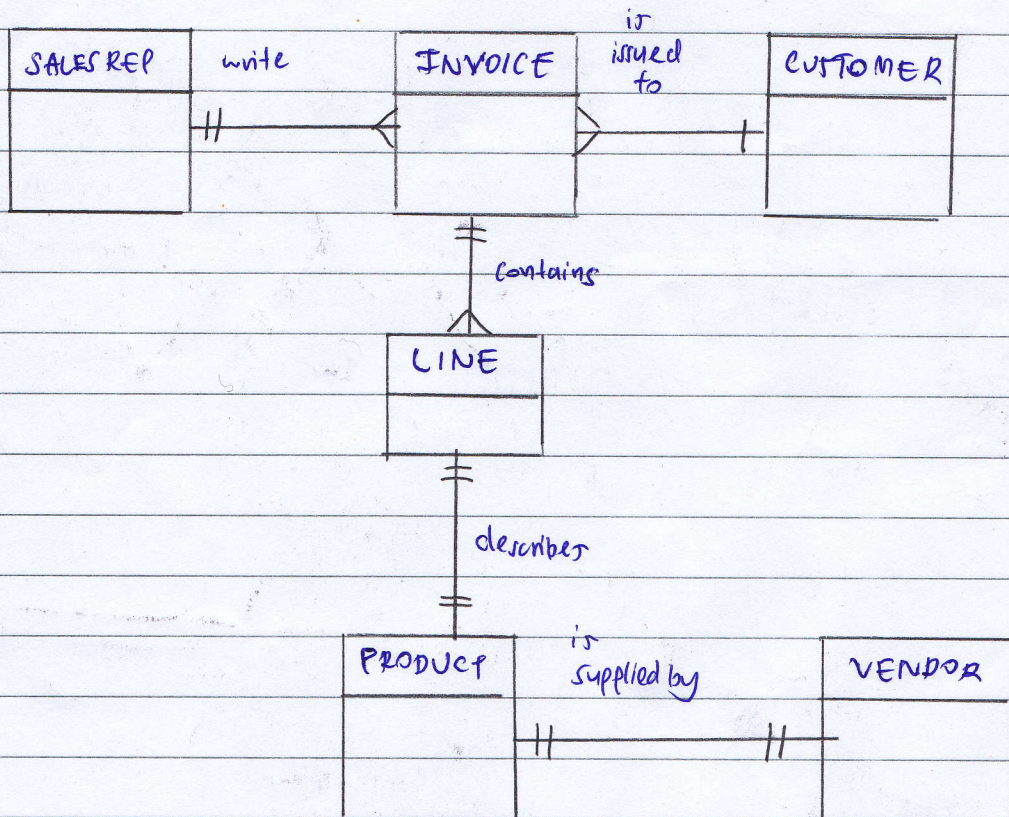 SALES REP
write
INVOICE
is
issued
to
CUSTOMER
contains
LINE
describes
PRODUCT
is
supplied by
VENDOR